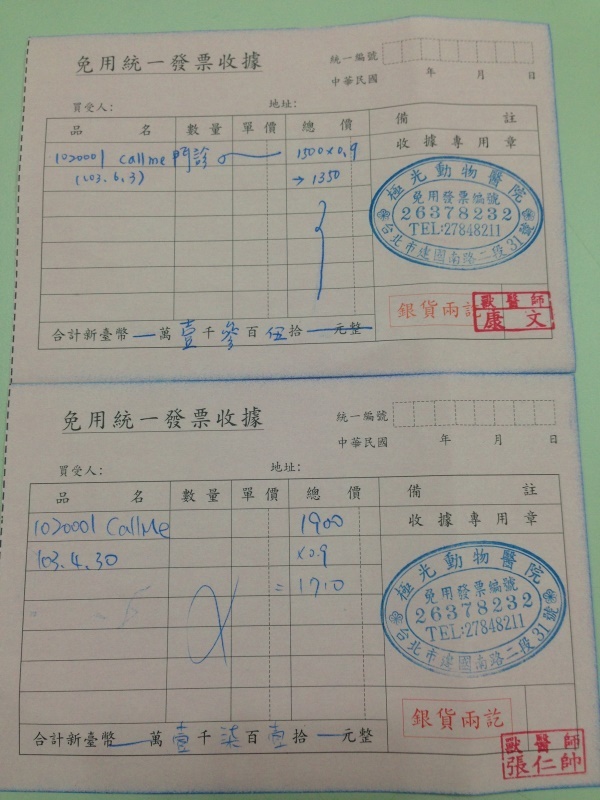 免用統一發票收據
統一編號
中華民國 年 月 日
買受人： 地址：
品 名 數量 單價 總 價 備 註
收據專用章
1020001 callme 門診 1500×0.9
(103.6.3) → 1350
極光動物醫院
免用發票編號
26378232
TEL:27848211
台北市建國南路二段31號
銀貨兩訖
獸醫師
康文
合計新臺幣 一 萬 壹 千 參 百 伍 拾 一 元整
免用統一發票收據
統一編號
中華民國 年 月 日
買受人： 地址：
品 名 數量 單價 總 價 備 註
收據專用章
1020001 CallMe 1900
103.4.30 ×0.9
=1710
極光動物醫院
免用發票編號
26378232
TEL:27848211
台北市建國南路二段31號
銀貨兩訖
獸醫師
張仁帥
合計新臺幣 一 萬 壹 千 柒 百 壹 拾 一 元整